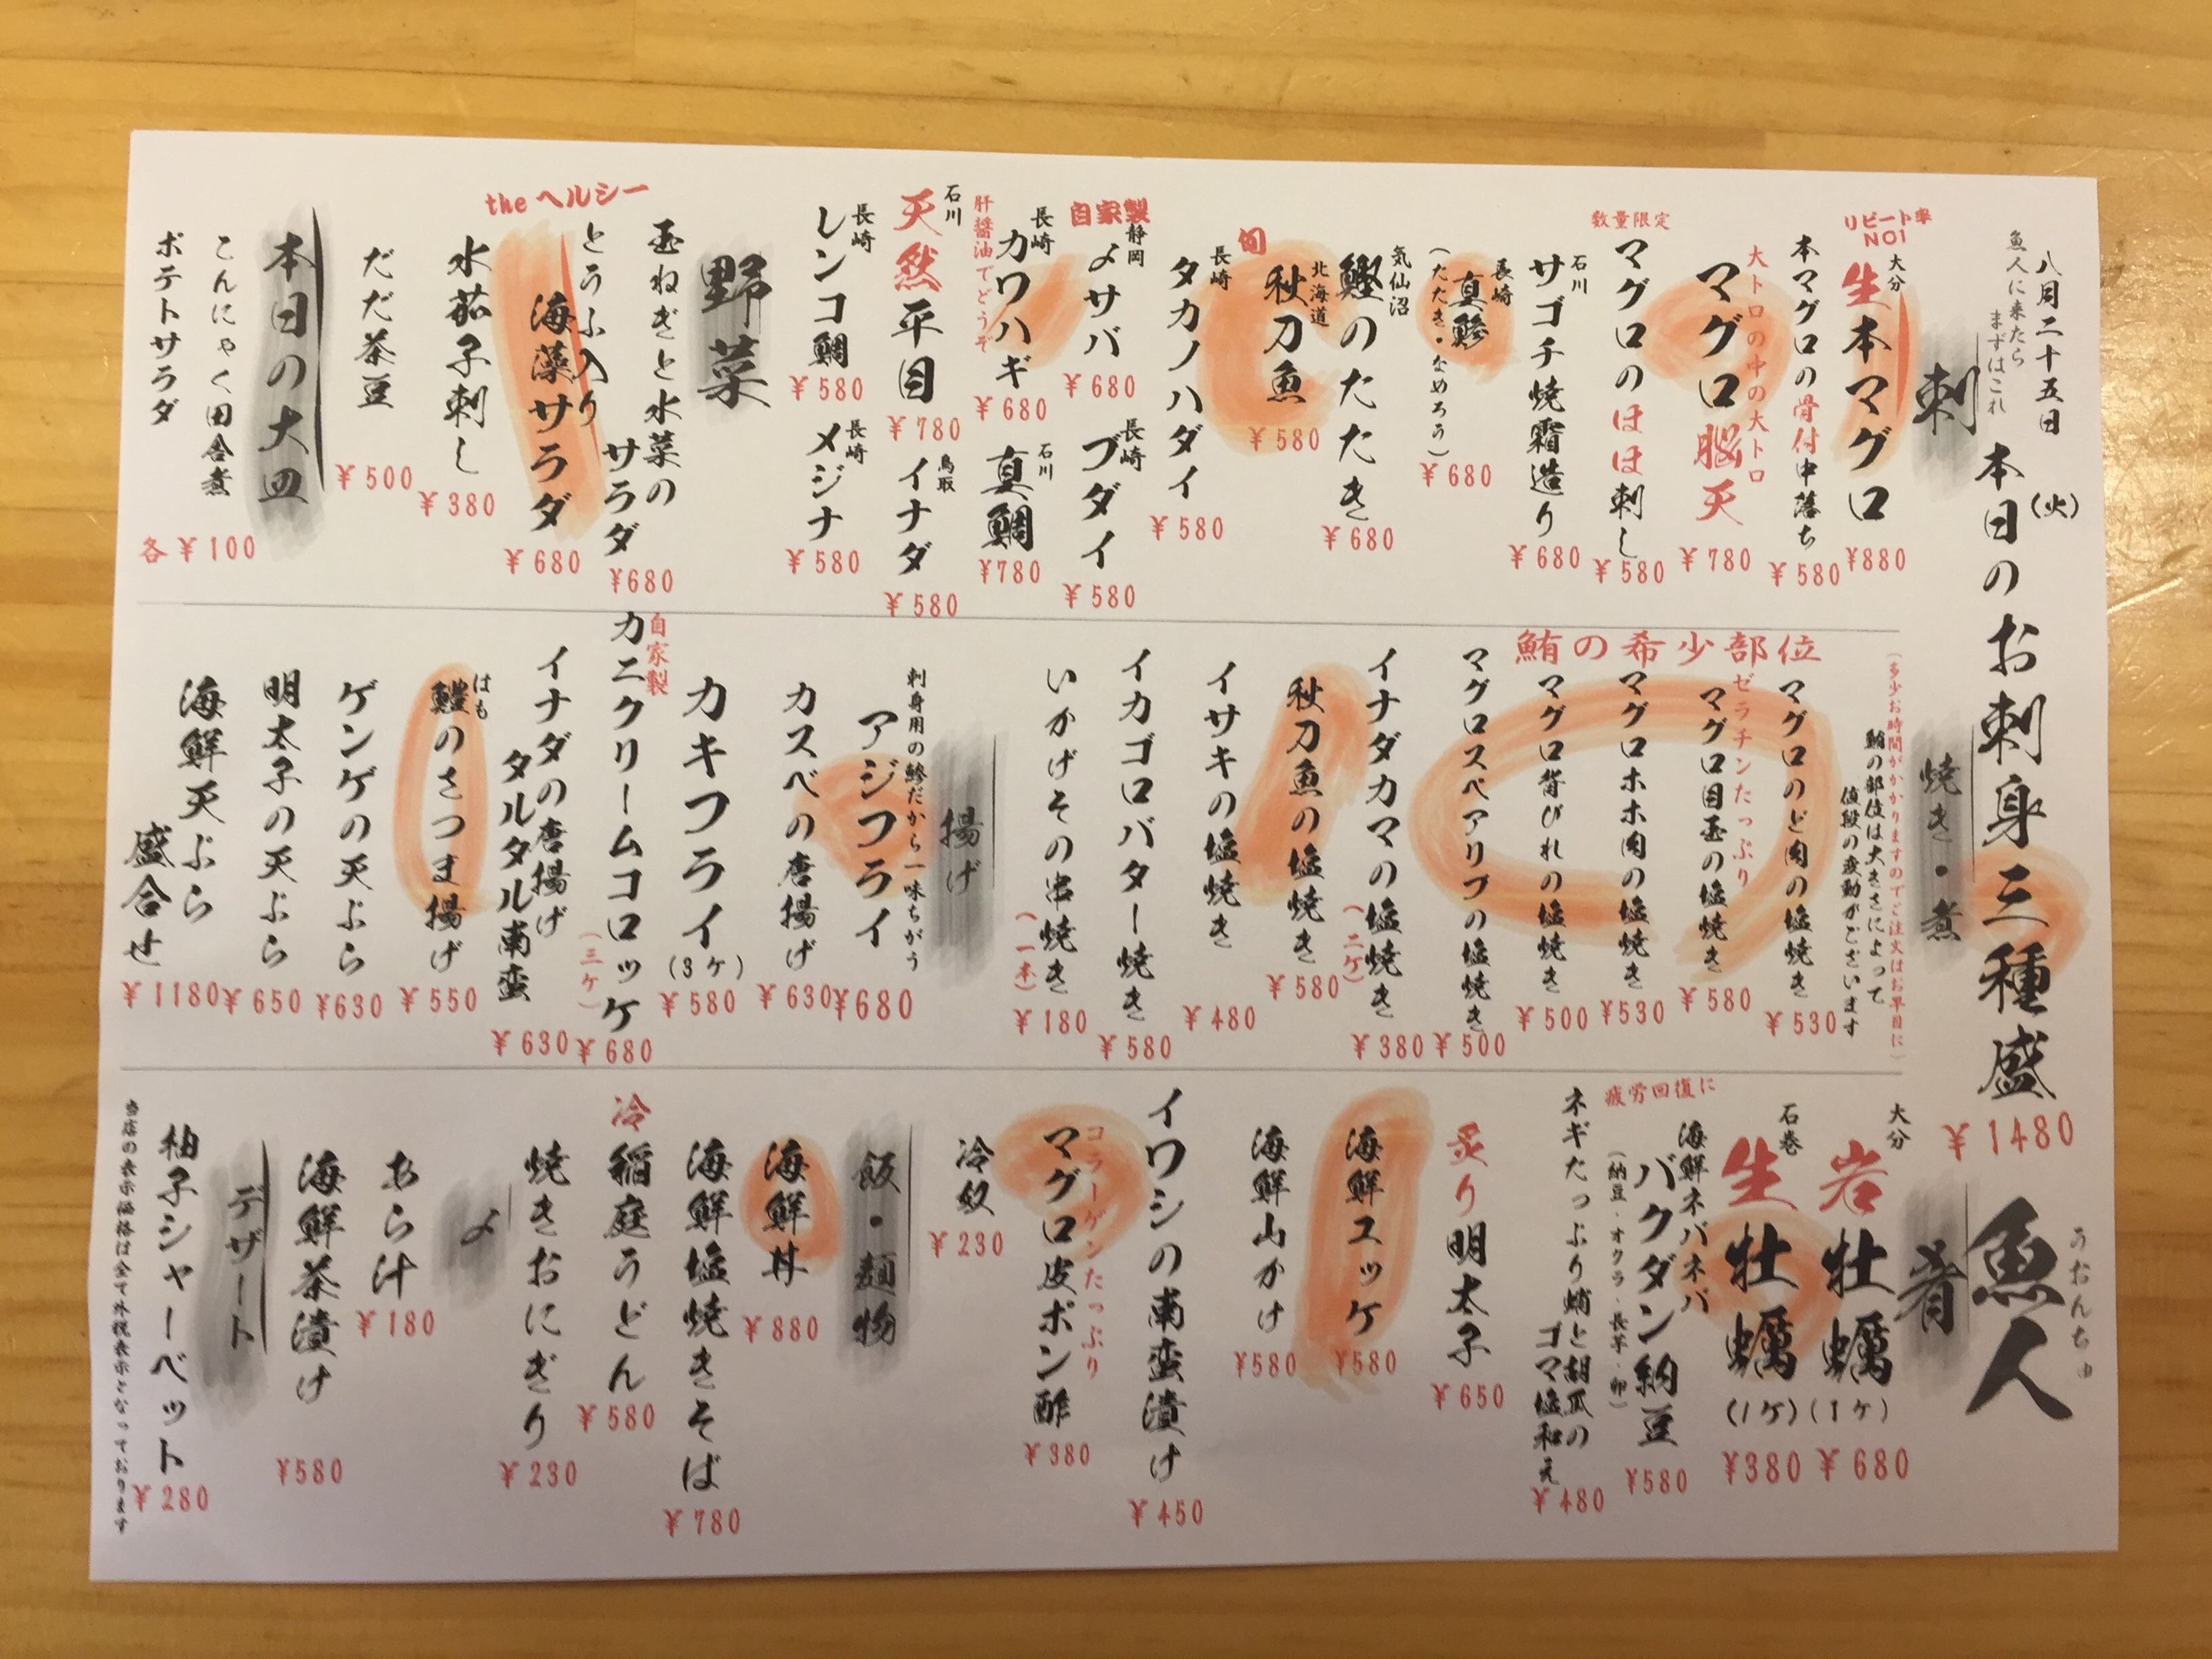 八月二十五日(火)
魚人に来たら
まずはこれ
本日のお刺身三種盛
¥1480
うおんちゅ
魚人
刺
リピート率
NO1
大分
生本マグロ
¥880
本マグロの骨付中落ち
¥580
大トロの中の大トロ
マグロ脳天
¥780
数量限定
マグロのほほ刺し
¥580
石川
サゴチ焼霜造り
¥680
長崎
真鯵
(たたき・なめろう)
¥680
気仙沼
鰹のたたき
¥680
旬
北海道
秋刀魚
¥580
長崎
タカノハダイ
¥580
自家製
静岡
〆サバ
¥680
長崎
ブダイ
¥580
長崎
カワハギ
肝醤油でどうぞ
¥680
石川
真鯛
¥780
石川
天然平目
¥780
鳥取
イナダ
¥580
長崎
レンコ鯛
¥580
長崎
メジナ
¥580
野菜
玉ねぎと水菜の
サラダ
¥680
theヘルシー
とうふ入り
海藻サラダ
¥680
水茄子刺し
¥380
だだ茶豆
¥500
本日の大皿
こんにゃく田舎煮
ポテトサラダ
各¥100
焼き・煮
(多少お時間がかかりますのでご注文はお早目に)
鮪の部位は大きさによって
値段の変動がございます
鮪の希少部位
マグロのど肉の塩焼き
¥530
ゼラチンたっぷり
マグロ目玉の塩焼き
¥580
マグロホホ肉の塩焼き
¥530
マグロ背びれの塩焼き
¥500
マグロスペアリブの塩焼き
¥500
イナダカマの塩焼き
(二ケ)
¥380
秋刀魚の塩焼き
¥580
イサキの塩焼き
¥480
イカゴロバター焼き
¥580
いかげその串焼き
(一本)
¥180
揚げ
刺身用の鯵だから一味ちがう
アジフライ
¥680
カスベの唐揚げ
¥630
カキフライ(3ケ)
¥580
自家製
カニクリームコロッケ
(三ケ)
¥680
イナダの唐揚げ
タルタル南蛮
¥630
はも
鱧のさつま揚げ
¥550
ゲンゲの天ぷら
¥630
明太子の天ぷら
¥650
海鮮天ぷら
盛合せ
¥1180
肴
大分
岩牡蠣(1ケ)
¥680
石巻
生牡蠣(1ケ)
¥380
疲労回復に
海鮮ネバネバ
バクダン納豆
(納豆・オクラ・長芋・卵)
¥580
ネギたっぷり蛸と胡瓜の
ゴマ塩和え
¥480
炙り明太子
¥650
海鮮ユッケ
¥580
海鮮山かけ
¥580
イワシの南蛮漬け
¥450
コラーゲンたっぷり
マグロ皮ポン酢
¥380
冷奴
¥230
飯・麺物
海鮮丼
¥880
海鮮塩焼きそば
¥780
冷稲庭うどん
¥580
焼きおにぎり
¥230
〆
あら汁
¥180
海鮮茶漬け
¥580
デザート
柚子シャーベット
¥280
当店の表示価格は全て外税表示となっております